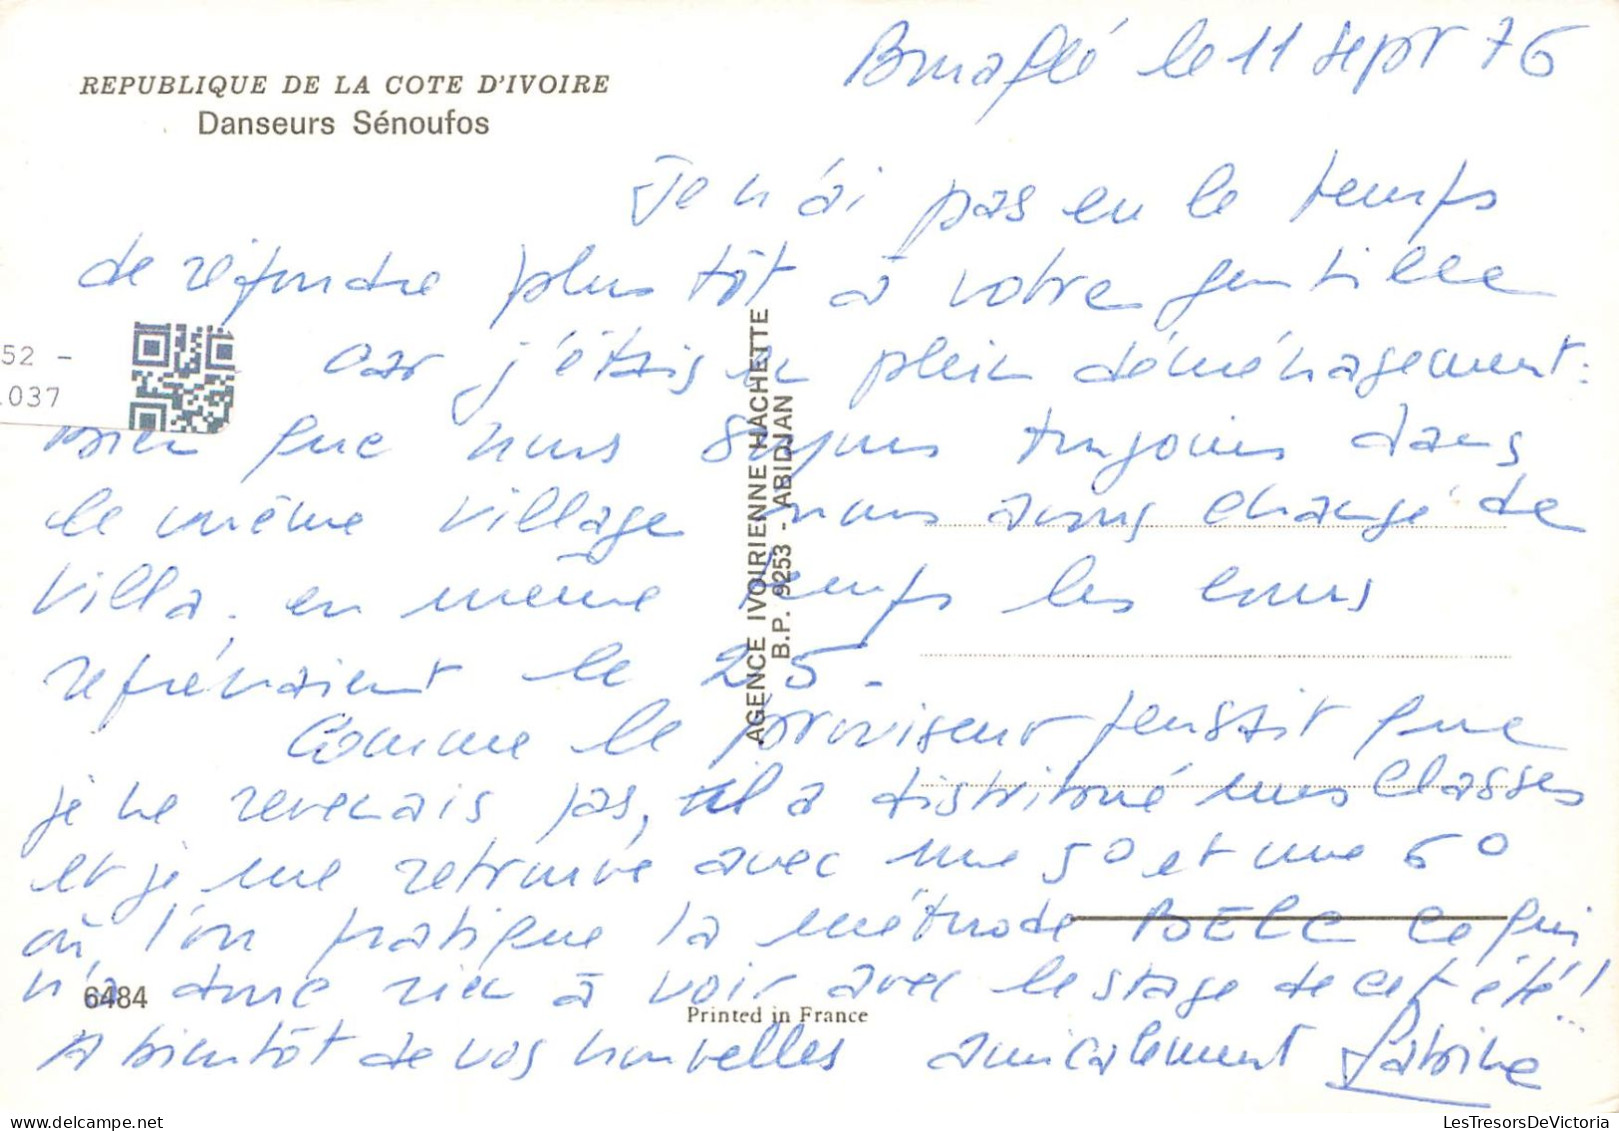 Bouaflé le 11 sept 76
REPUBLIQUE DE LA COTE D'IVOIRE
Danseurs Sénoufos
Je n'ai pas eu le temps
de répondre plus tôt à votre gentille
car j'étais en plein déménagement :
52 -
037
Bien que nous soyons toujours dans
le même village nous avons changé de
villa, en même temps les cours
reprenaient le 25.
Comme le proviseur pensait que
je ne revenais pas, il a distribué mes classes
et je me retrouve avec une 5° et une 6°
où l'on pratique la méthode BELC ce qui
n'a donc rien à voir avec le stage de cet été !..
A bientôt de vos nouvelles amicalement Sabine
AGENCE IVOIRIENNE HACHETTE
B.P. 9253 - ABIDJAN
6484
Printed in France
LesTresorsDeVictoria